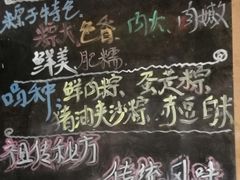 粽子特色
粽大 色香 肉大 肉嫩
鲜美 肥糯
品种 鲜肉粽 蛋黄粽
猪油夹沙粽 赤豆白味
祖传秘方
传统风味